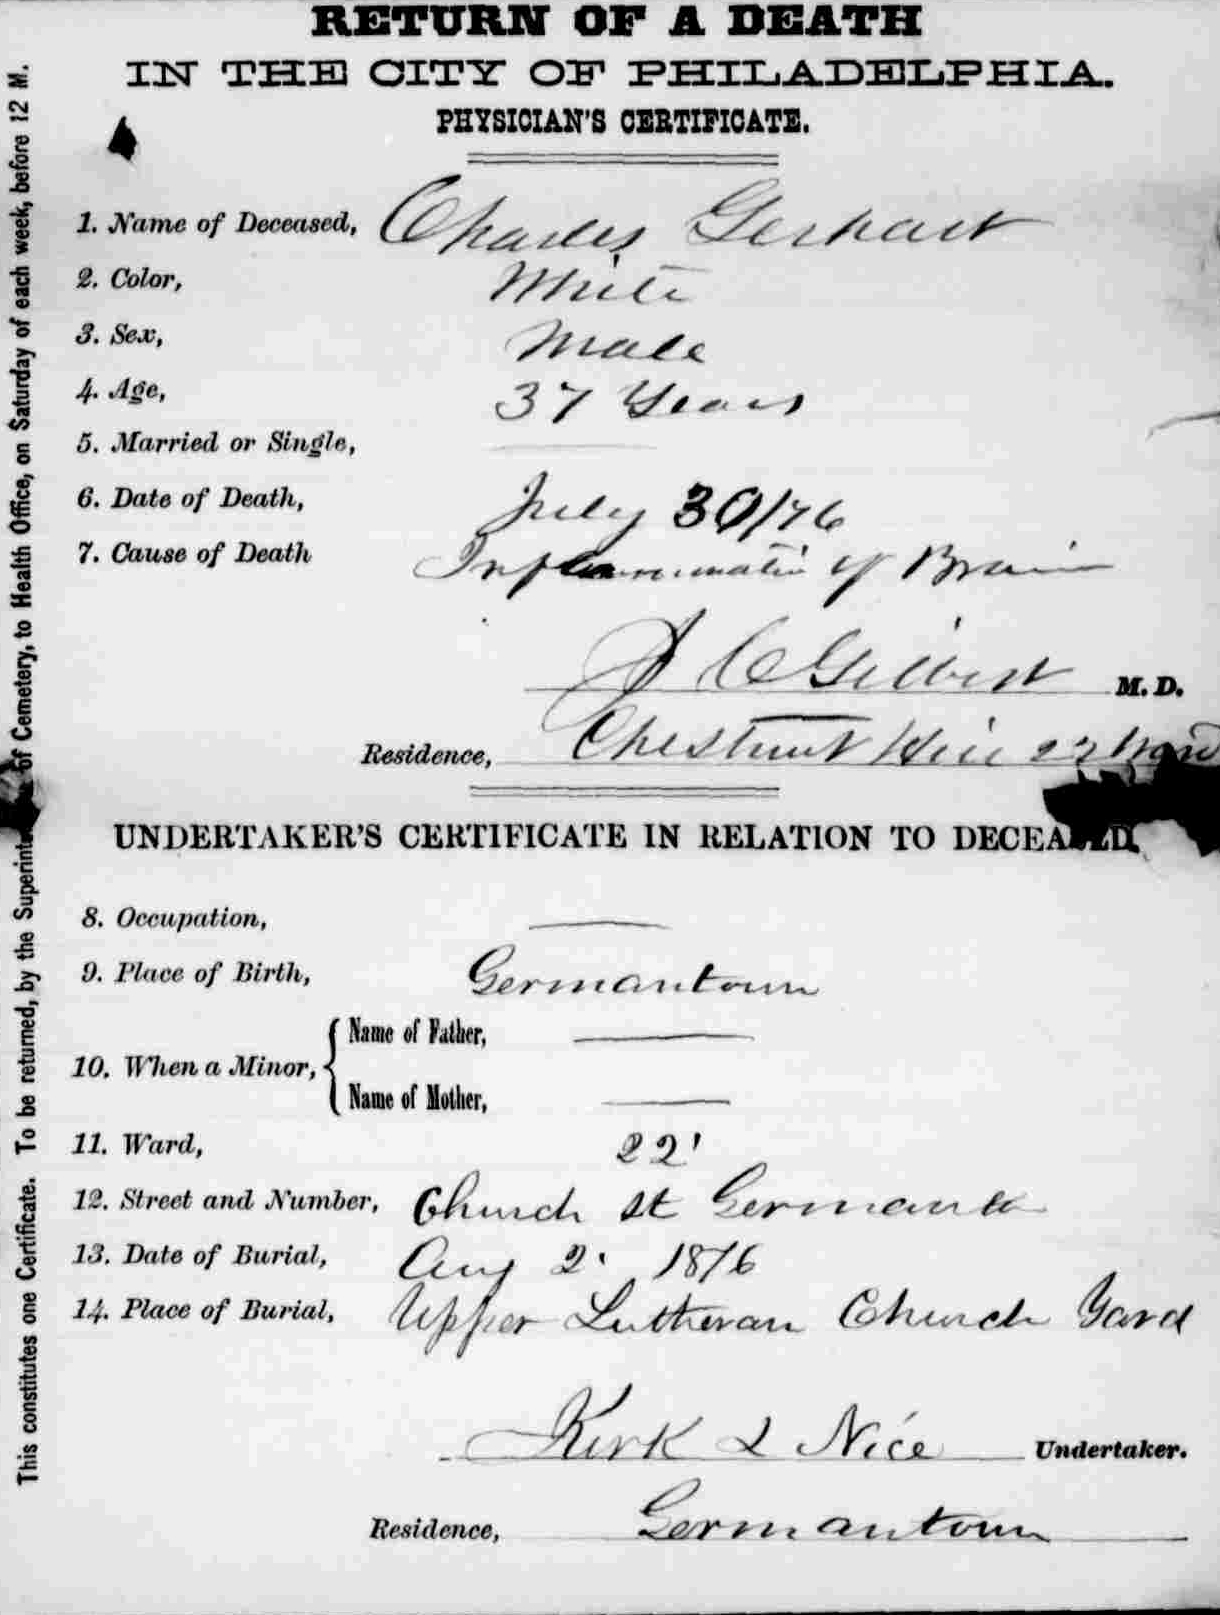 RETURN OF A DEATH
IN THE CITY OF PHILADELPHIA.
PHYSICIAN'S CERTIFICATE.
1. Name of Deceased, Charles Gerhart
2. Color, White
3. Sex, Male
4. Age, 37 Years
5. Married or Single,
6. Date of Death, July 30/76
7. Cause of Death Inflammation of Brain
J C Gilbert M. D.
Residence, Chestnut Hill 22 Ward
UNDERTAKER'S CERTIFICATE IN RELATION TO DECEASED.
8. Occupation,
9. Place of Birth, Germantown
10. When a Minor,
Name of Father,
Name of Mother,
11. Ward, 22'
12. Street and Number, Church St
13. Date of Burial, Aug 2. 1876
14. Place of Burial, Upper Lutheran Church Yard
Kirk & Nice Undertaker.
Residence, Germantown
This constitutes one Certificate. To be returned, by the of Cemetery, to Health Office, on Saturday of each week, before 12 M.